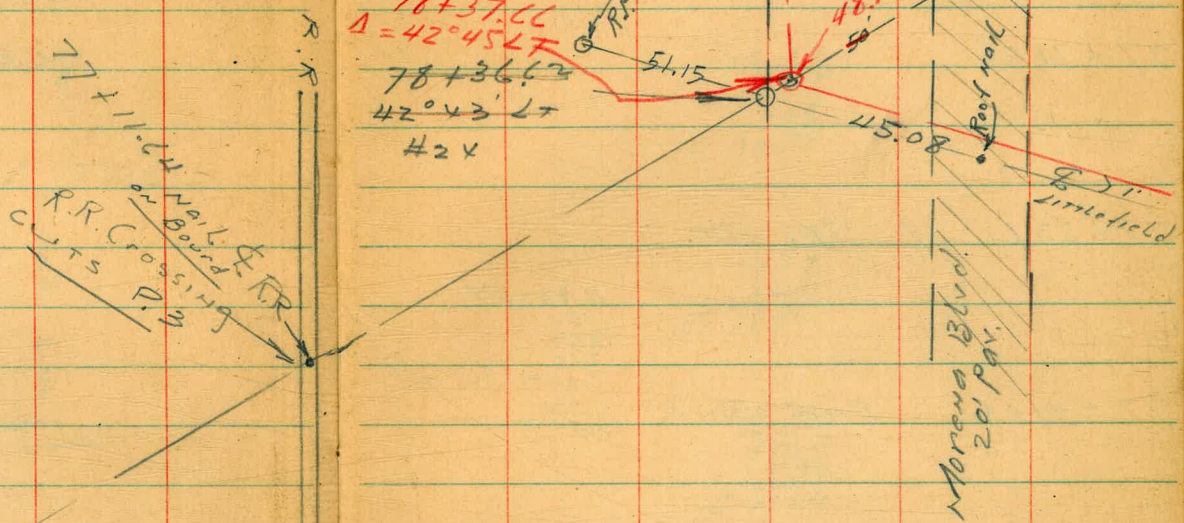 R.R.
77+11.64 Nail ℄ R.R
on Bound
R.R. Crossing
Cuts P.3
78+37.66
Δ=42°45' LT
78+36.62
42°43' LT
#2x
51.15
48.
50
45.08
Root Nail
℄
1'
Littlefield
Morena Blvd.
20' Pav.